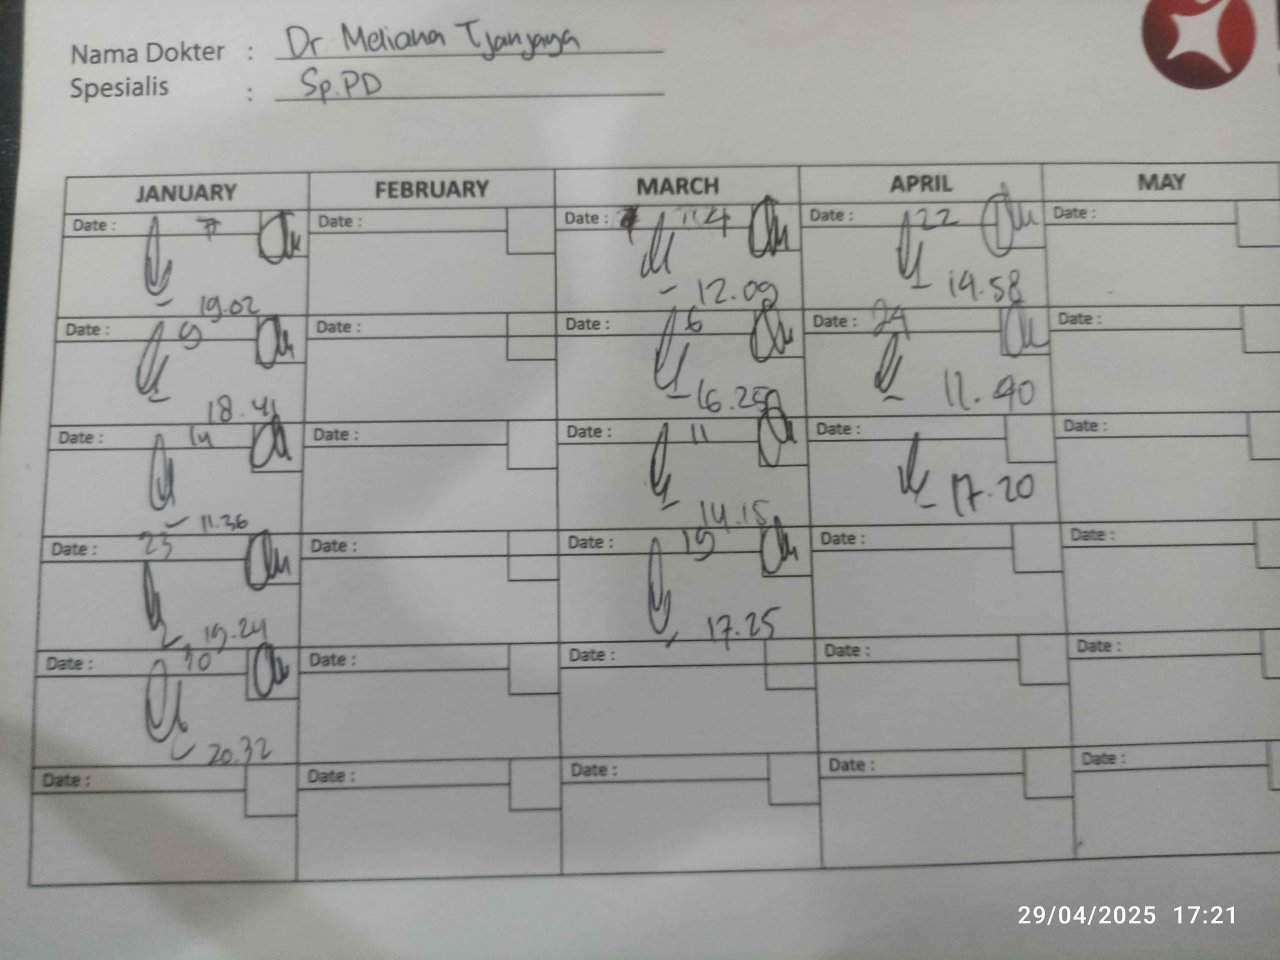 Nama Dokter : Dr Meliana Tjanjaya
Spesialis : Sp.PD
JANUARY FEBRUARY MARCH APRIL MAY
Date : 7 Date : Date : 4 Date : 22 Date :
19.02 12.09 19.58
Date : 9 Date : Date : 6 Date : 24 Date :
18.41 16.25 11.40
Date : 14 Date : Date : 11 Date : Date :
11.36 14.15 17.20
Date : 23 Date : Date : 19 Date : Date :
19.24 17.25
Date : 30 Date : Date : Date : Date :
20.32
Date : Date : Date : Date : Date :
29/04/2025 17:21